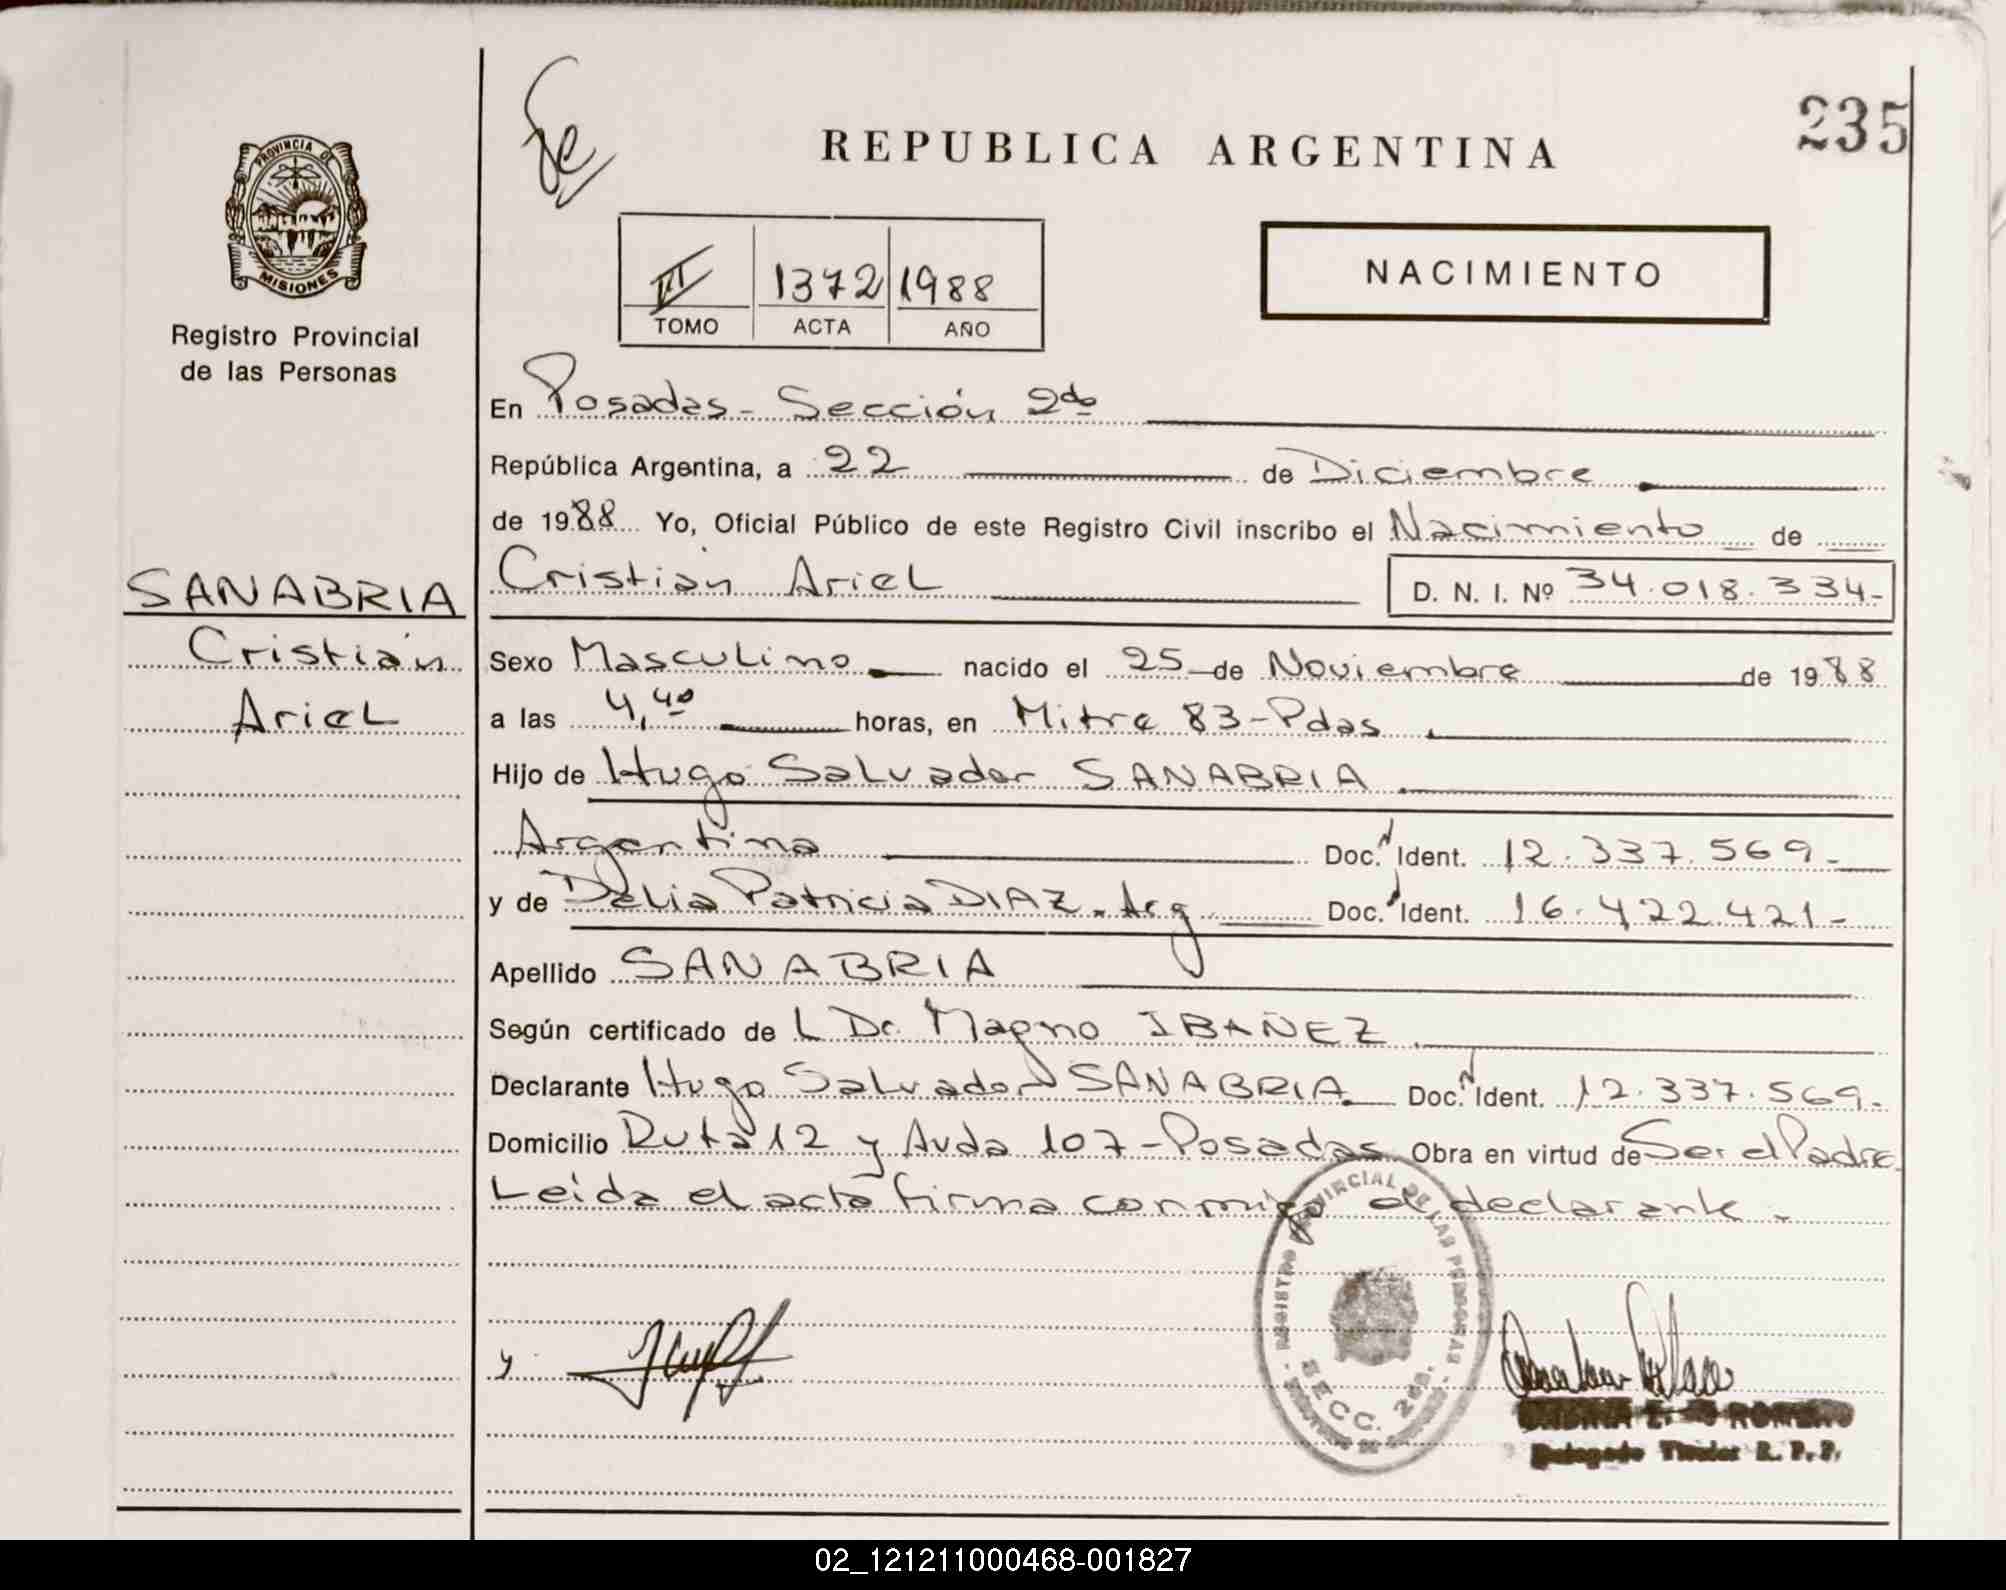 235
REPUBLICA ARGENTINA
PROVINCIA DE
MISIONES
Registro Provincial
de las Personas
III 1372 1988
TOMO ACTA AÑO
NACIMIENTO
En Posadas - Sección 2da
República Argentina, a 22 de Diciembre
de 1988 Yo, Oficial Público de este Registro Civil inscribo el Nacimiento de
Cristián Ariel D. N. I. Nº 34.018.334-
SANABRIA
Cristián
Ariel
Sexo Masculino nacido el 25 de Noviembre de 1988
a las 4,40 horas, en Mitre 83 - Pdas
Hijo de Hugo Salvador SANABRIA
Argentina Doc. Ident. 12.337.569-
y de Delia Patricia DIAZ - Arg Doc. Ident. 16.422.421-
Apellido SANABRIA
Según certificado de L Dr. Magno IBAÑEZ
Declarante Hugo Salvador SANABRIA Doc. Ident. 12.337.569-
Domicilio Ruta 12 y Avda 107 - Posadas Obra en virtud de Ser el Padre
Leída el acta firma conmigo el declarante.
REGISTRO PROVINCIAL DE LAS PERSONAS
SECC. 2da.
y
ROMERO
Delegado Titular R. P. P.
02_121211000468-001827